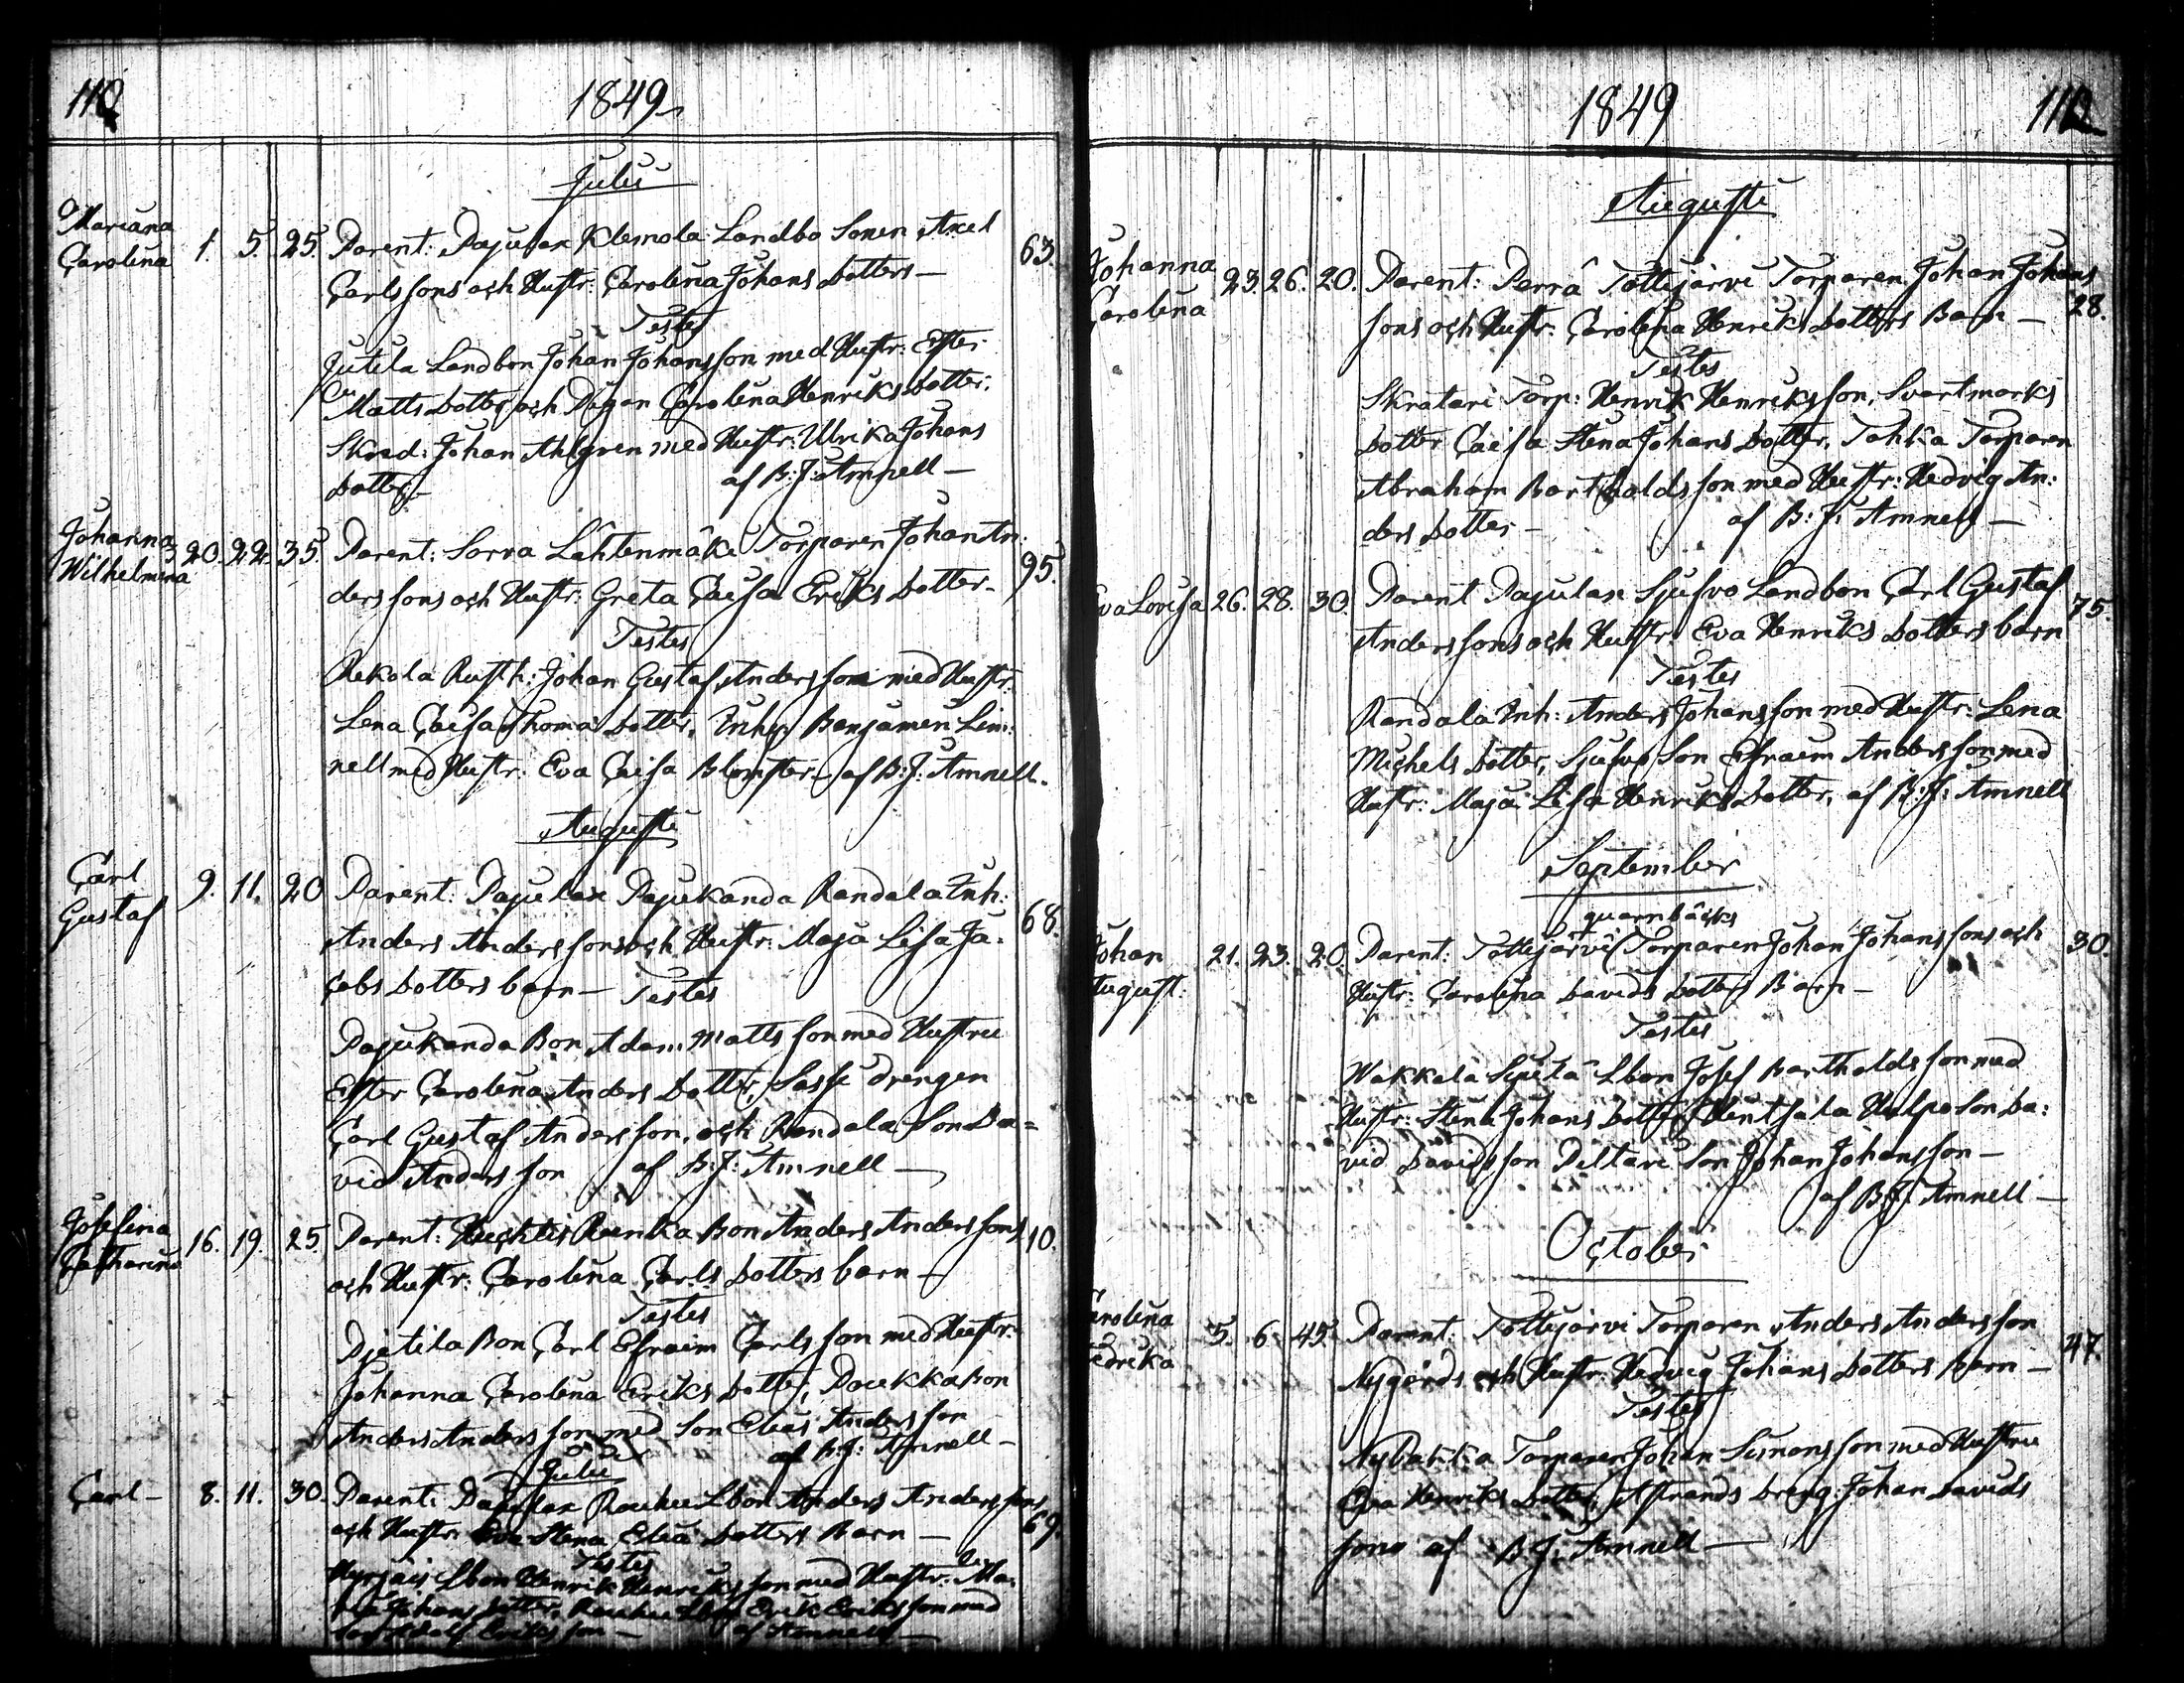 110
1849
Julii
Mariana
Carolina 1. 5. 25. Parent: Pajulax Klemola Landbo Sonen Axel 63.
Carlssons och Hustr: Carolina Johans Dotters —
Testes
Jutila Landbon Johan Johansson med Hustr: Ester
Matts Dotter, och Pigan Carolina Henriks Dotter,
Skred: Johan Ahlgren med Hustr: Ulrika Johans
Dotter — af B: J: Amnell —
Johanna
Wilhelmina 20. 22. 35. Parent: Sorva Lähtenmäki Torparen Johan An: 95.
ders sons och Hustr: Greta Caisa Eriks Dotter —
Testes
Rekola Rusth: Johan Gustaf Andersson med Hustr:
Lena Caisa Thomä Dotter, Inh: Benjamin Lin:
nell med Hustr: Eva Caisa Blomster — af B: J: Amnell.
Augusti
Carl
Gustaf 9. 11. 20 Parent: Pajulax Pajukanda Randala Inh: 68.
Anders Anderssons och Hustr: Maja Lisa Ja:
cobs Dotters barn — Testes
Pajukanda Bon Adam Mattsson med Hustru
Ester Carolina Anders Dotter, Sassi drengen
Carl Gustaf Andersson, och Randala Son Da=
vid Andersson af B: J: Amnell —
Josefina
Catharina 16. 19. 25. Parent: Huchtis Runka Bon Anders Anderssons 110.
och Hustr: Carolina Carls Dotters barn —
Testes
Pjetila Bon Carl Efraim Carlsson med Hustr:
Johanna Carolina Eriks Dotter, Poukka Bon
Anders Andersson med Son Elias Andersson
af B: J: Amnell —
Julii
Carl — 8. 11. 30. Parent: Pajulax Rouhu Lbon Anders Anderssons 69.
och Hustr: Eva Stena Eliä Dotters Barn —
Testes
Lbon Henrik Henriksson med Hustr: Ma:
Johans Dotter, Rouhu Lbon Erik Eriksson med
Son Adolf Eriksson — af Amnell —
1849
Augusti
Johanna
Carolina 23. 26. 20. Parent: Perrä Tottijärvi Torparen Johan Johans
sons och Hustr: Carolina Henriks Dotters Barn — 28.
Testes
Skratari Torp: Henrik Henriksson, Svartmarks
Dotter Caisa Stena Johans Dotter, Tahka Torparen
Abraham Bartholdsson med Hustr: Hedvig An:
ders Dotter — af B: J: Amnell —
Eva Lovisa 26. 28. 30. Parent Pajulax Sjufvo Landbon Carl Gustaf 75.
Anderssons och Hustr: Eva Henriks Dotters barn
Testes
Randala Inh: Anders Johansson med Hustr: Lena
Michels Dotter, Sjufvo Son Efraim Andersson med
Hustr: Maja Lisa Henriks Dotter, af B: J: Amnell
September
quarnbäcks
Johan
August. 21. 23. 20. Parent: Tottijärvi Torparen Johan Johanssons och 30.
Hustr: Carolina Davids Dotters Barn —
Testes
Wakkala Sipilä Lbon Josef Bartholdsson med
Hustr: Stena Johans Dotter, Hentsala Hulpo Son Da:
vid Davidsson Peltari Son Johan Johansson —
af B: J: Amnell —
October
Carolina
Fedrika 5. 6. 45. Parent: Tottijärvi Torparen Anders Andersson 47.
Nygårds och Hustr: Hedvig Johans Dotters Barn —
Testes
Nybakka Torparen Johan Simonsson med Hustru
Eva Henriks Dotter, Astrands Dreng: Johan Davids
sons af B: J: Amnell —